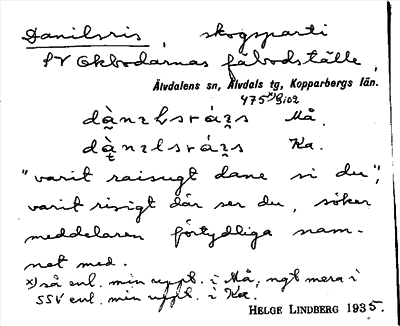 Danilsris, skogsparti
SV Okbodarnas fäbodställe,
Älvdalens sn, Älvdals tg, Kopparbergs län.
475 x) 8102
Må.
Ka.
"varit raisugt dane si du",
varit risigt där ser du, söker
meddelaren förtydliga nam-
net med.
x) så enl. min uppt. i Må, ngt mera i
SSV enl. min uppt. i Ka.
HELGE LINDBERG 1935.